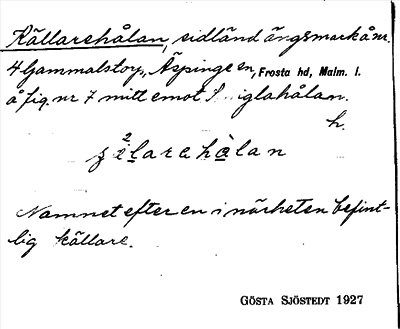 Källarehålan, sidländ ängsmark å nr.
4 Gammalstorp, Äspinge sn, Frosta hd, Malm. l.
å fig. nr 7 mitt emot iglahålan.
h.
Namnet efter en i närheten befint-
lig källare.
GÖSTA SJÖSTEDT 1927